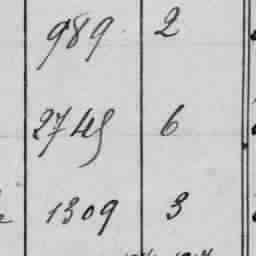 989 2
2745 6
1309 3